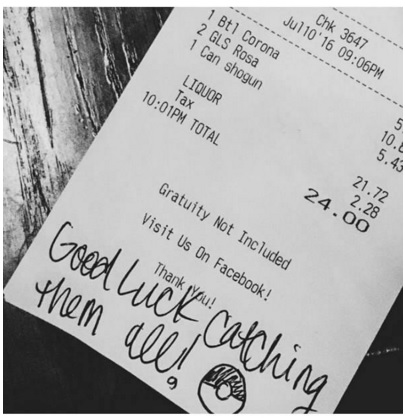 Chk 3647
Jul10'16 09:06PM
1 Btl Corona 5
2 GLS Rosa 10.8
1 Can shogun 5.43
LIQUOR 21.72
Tax 2.28
10:01PM TOTAL 24.00
Gratuity Not Included
Visit Us On Facebook!
Thank You!
Good Luck Catching
them all!